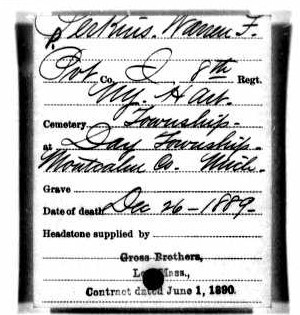 Perkins. Warren F.
Pvt Co. D, 8th Regt.
Ny. H Art.
Cemetery Township.
at Day Township.
Montcalm Co. Mich.
Grave
Date of death Dec 26-1889
Headstone supplied by
Gross Brothers,
Mass.,
Contract dated June 1, 1890.